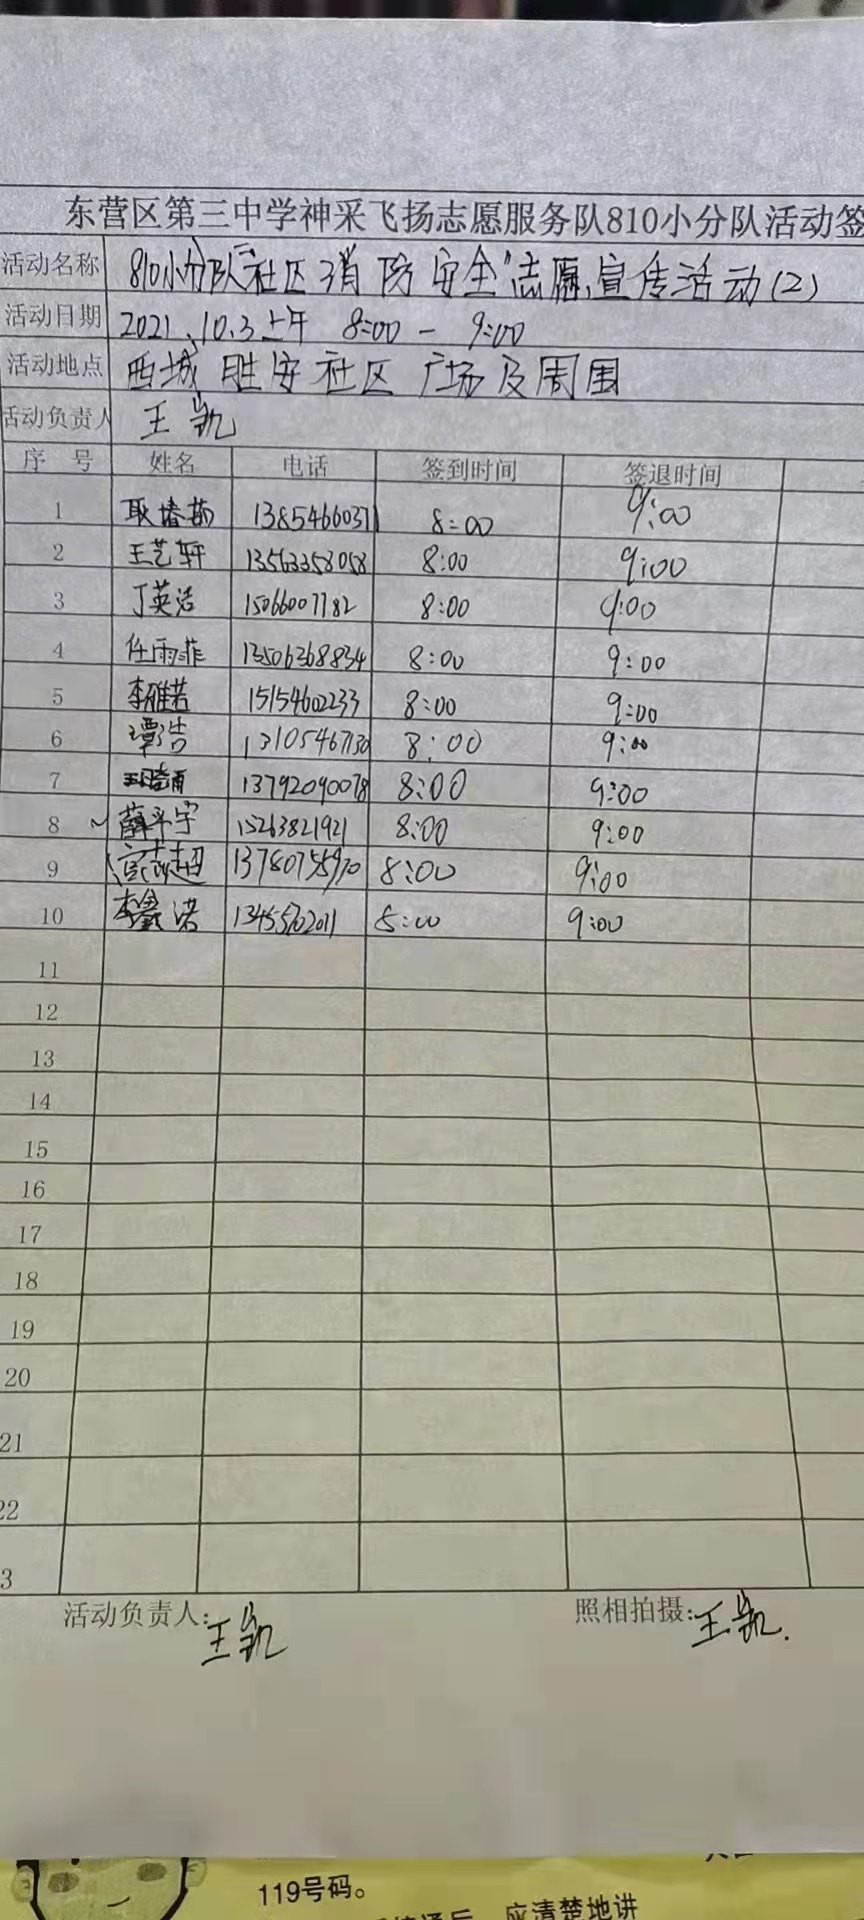 东营区第三中学神采飞扬志愿服务队810小分队活动签
活动名称 810小分队"社区消防安全"志愿宣传活动(2)
活动日期 2021.10.3上午 8:00-9:00
活动地点 西城胜安社区广场及周围
活动负责人 王凯
序 号 姓名 电话 签到时间 签退时间
1 13854660371 8:00 9:00
2 王艺轩 13563358058 8:00 9:00
3 丁英洁 15066007782 8:00 9:00
4 任雨菲 13506368834 8:00 9:00
5 李雅若 15154602233 8:00 9:00
6 谭浩 13105467130 8:00 9:00
7 13792090078 8:00 9:00
8 薛平宇 15263821921 8:00 9:00
9 8:00 9:00
10 李鑫诺 8:00 9:00
11
12
13
14
15
16
17
18
19
20
21
22
3
活动负责人:王凯 照相拍摄:王凯.
119号码。
应清楚地讲